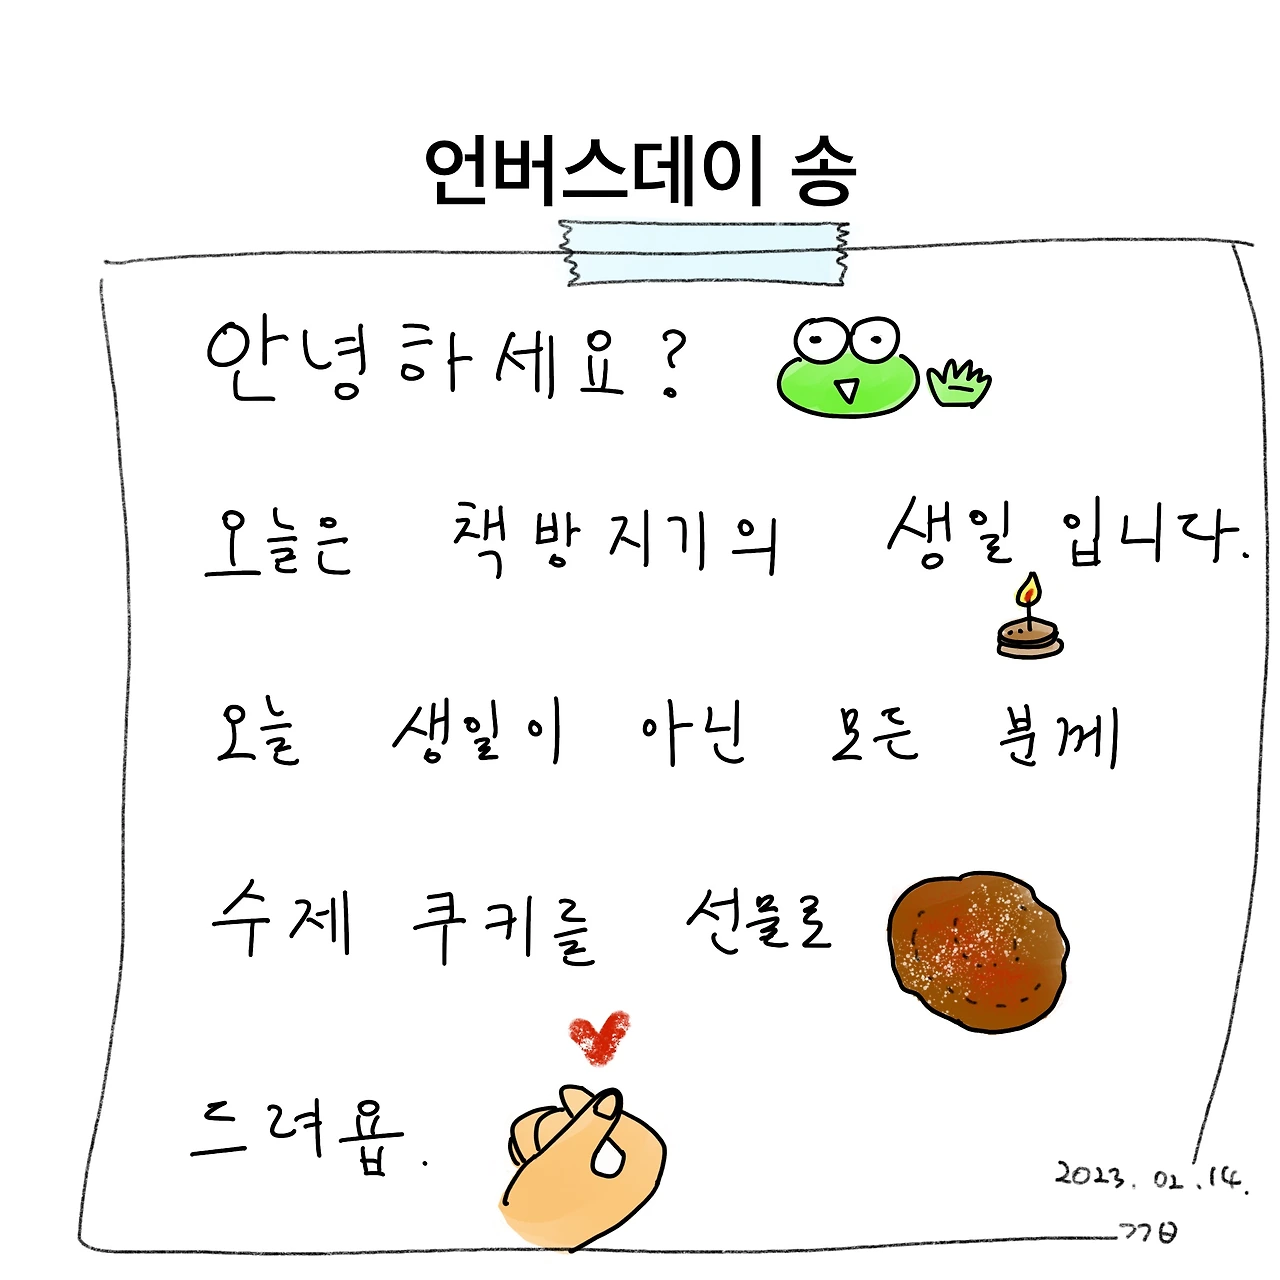 언버스데이 송
안녕하세요?
오늘은 책방지기의 생일입니다.
오늘 생일이 아닌 모든 분께
수제 쿠키를 선물로
드려욥.
2023. 02. 14.